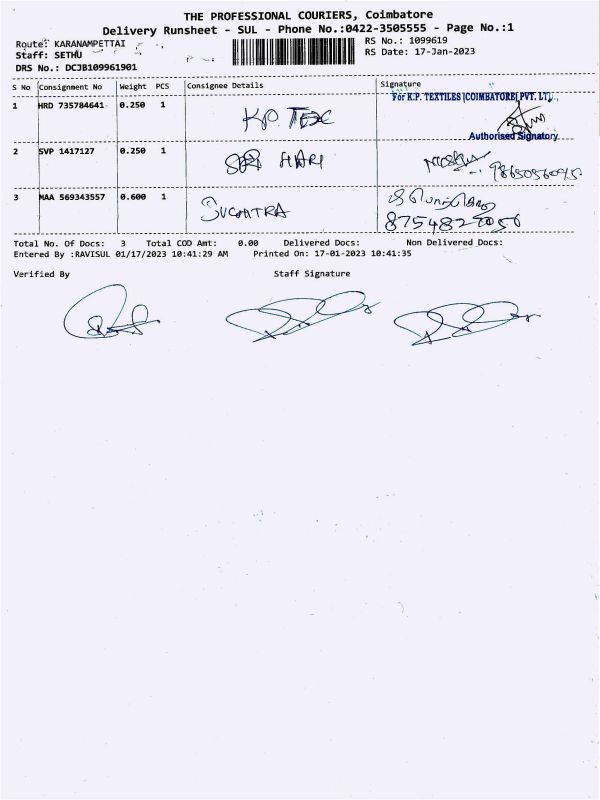 THE PROFESSIONAL COURIERS, Coimbatore
Delivery Runsheet - SUL - Phone No.:0422-3505555 - Page No.:1
Route: KARANAMPETTAI
RS No.: 1099619
Staff: SETHU
RS Date: 17-Jan-2023
DRS No.: DCJB109961901
S No Consignment No Weight PCS Consignee Details Signature
1 HRD 735784641 0.250 1 K.P. TEX
For K.P. TEXTILES (COIMBATORE) PVT. LTD.,
Authorised Signatory
2 SVP 1417127 0.250 1 SRI HARI
9865056095
3 MAA 569343557 0.600 1 SUCHTRA
8754827056
Total No. Of Docs: 3 Total COD Amt: 0.00 Delivered Docs: Non Delivered Docs:
Entered By :RAVISUL 01/17/2023 10:41:29 AM Printed On: 17-01-2023 10:41:35
Verified By Staff Signature